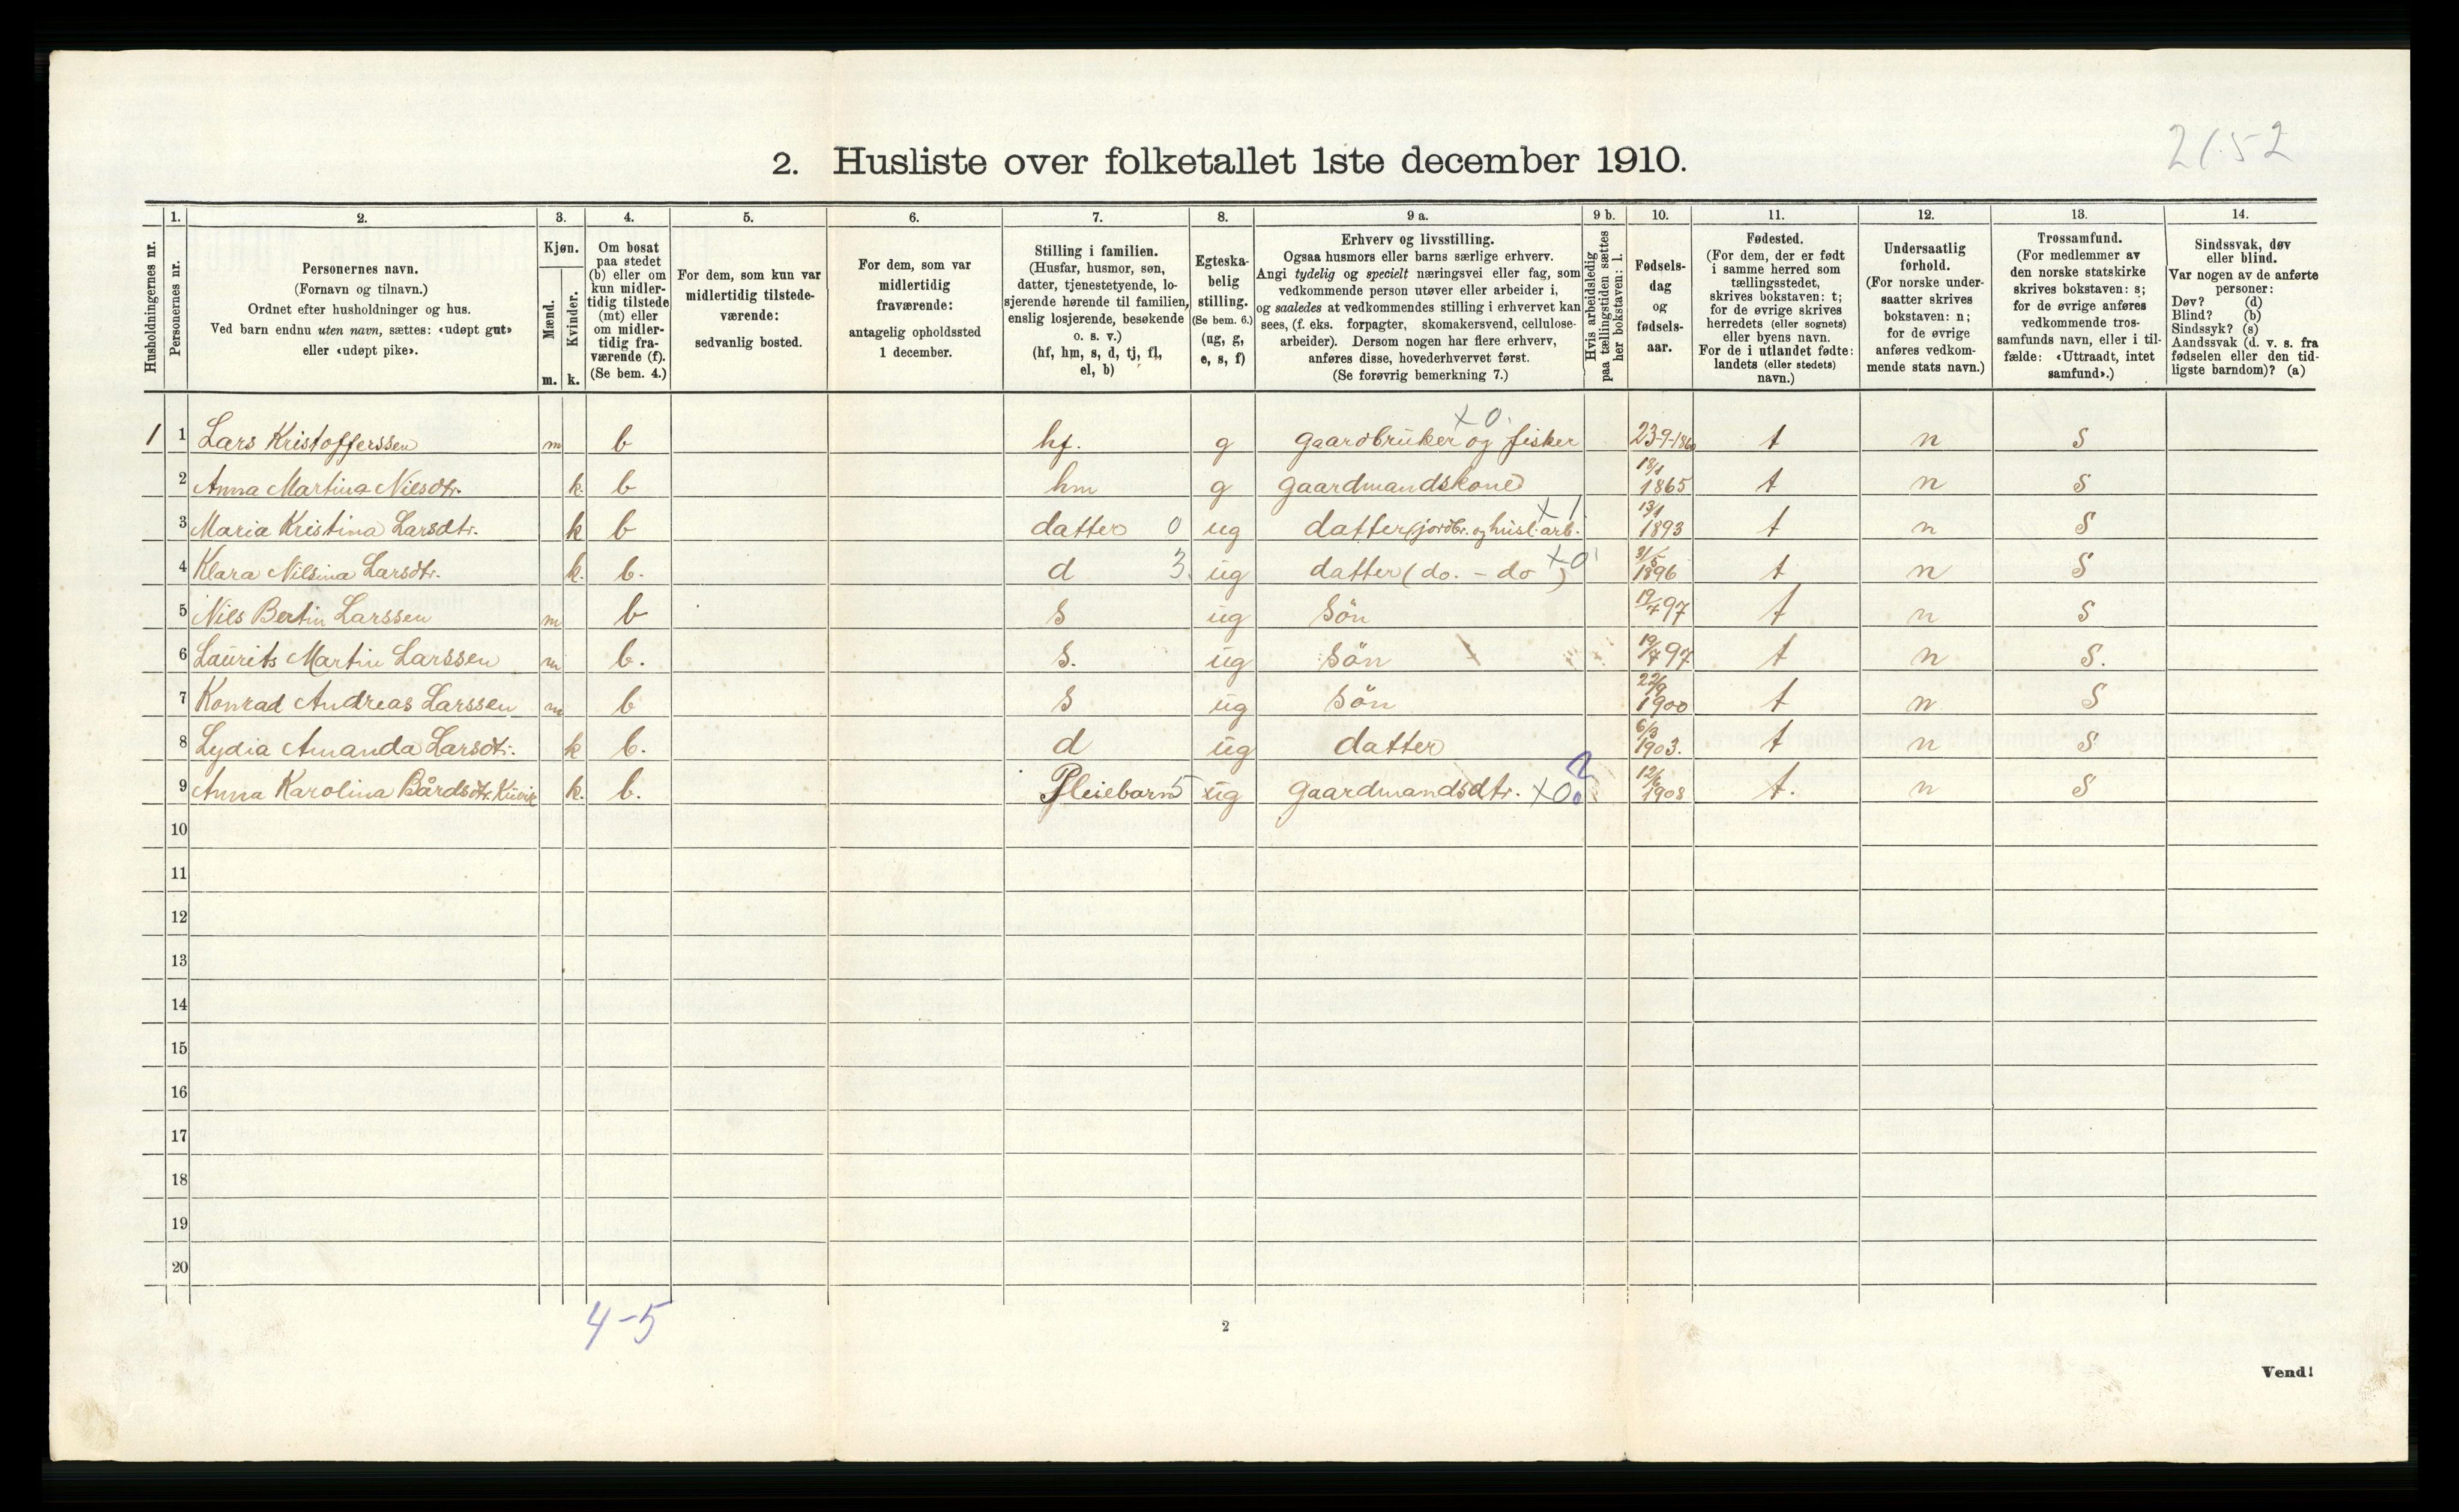 21.52
2. Husliste over folketallet 1ste december 1910.
Husholdningernes nr.
1. Personernes nr.
2. Personernes navn. (Fornavn og tilnavn.) Ordnet efter husholdninger og hus. Ved barn endnu uten navn, sættes: «udøpt gut» eller «udøpt pike».
3. Kjøn. Mænd. m. Kvinder. k.
4. Om bosat paa stedet (b) eller om kun midlertidig tilstede (mt) eller om midlertidig fraværende (f). (Se bem. 4.)
5. For dem, som kun var midlertidig tilstedeværende: sedvanlig bosted.
6. For dem, som var midlertidig fraværende: antagelig opholdssted 1 december.
7. Stilling i familien. (Husfar, husmor, søn, datter, tjenestetyende, losjerende hørende til familien, enslig losjerende, besøkende o. s. v.) (hf, hm, s, d, tj, fl, el, b)
8. Egteskabelig stilling. (Se bem. 6.) (ug, g, e, s, f)
9 a. Erhverv og livsstilling. Ogsaa husmors eller barns særlige erhverv. Angi tydelig og specielt næringsvei eller fag, som vedkommende person utøver eller arbeider i, og saaledes at vedkommendes stilling i erhvervet kan sees, (f. eks. forpagter, skomakersvend, cellulosearbeider). Dersom nogen har flere erhverv, anføres disse, hovederhvervet først. (Se forøvrig bemerkning 7.)
9 b. Hvis arbeidsledig paa tællingstiden sættes her bokstaven: l.
10. Fødselsdag og fødselsaar.
11. Fødested. (For dem, der er født i samme herred som tællingsstedet, skrives bokstaven: t; for de øvrige skrives herredets (eller sognets) eller byens navn. For de i utlandet fødte: landets (eller stedets) navn.)
12. Undersaatlig forhold. (For norske undersaatter skrives bokstaven: n; for de øvrige anføres vedkommende stats navn.)
13. Trossamfund. (For medlemmer av den norske statskirke skrives bokstaven: s; for de øvrige anføres vedkommende trossamfunds navn, eller i tilfælde: «Uttraadt, intet samfund».)
14. Sindssvak, døv eller blind. Var nogen av de anførte personer: Døv? (d) Blind? (b) Sindssyk? (s) Aandssvak (d. v. s. fra fødselen eller den tidligste barndom)? (a)
1 1 Lars Kristofferssen m b hf. g gaardbruker og fisker x0. 23-9-1860 t n S
2 Anna Martina Nilsdtr. k. b hm g gaardmandskone 18/1 1865 t n S
3 Maria Kristina Larsdtr. k b datter 0 ug datter (jordbr. og husl. arb. x1 13/1 1893 t n S
4 Klara Nilsina Larsdtr. k. b. d 3 ug datter (do. - do) x0 31/5 1896 t n S
5 Nils Bertin Larssen m b s ug Sön 19/7 97 t n S
6 Laurits Martin Larssen m b. s. ug Sön 19/7 97 t n S.
7 Konrad Andreas Larssen m b s ug Sön 22/9 1900 t n S
8 Lydia Amanda Larsdtr. k b. d ug datter 6/3 1903. t n S
9 Anna Karolina Bårdsdtr. Kuvik k. b. Pleiebarn 5 ug gaardmandsdtr. x0 ? 12/6 1908 t. n S
10
11
12
13
14
15
16
17
18
19
20
4-5
2
Vend!